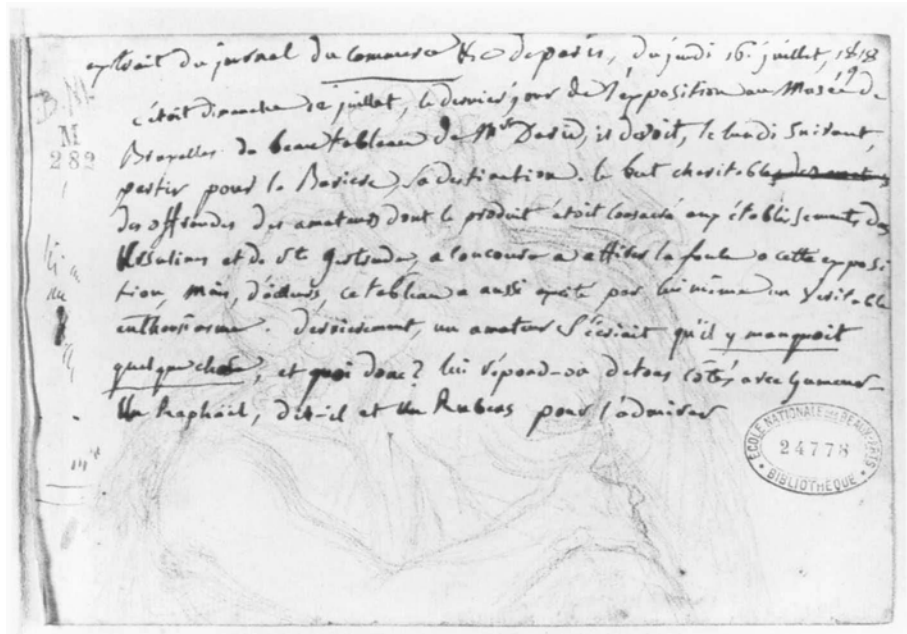 extrait du jurnal du commerce &c de paris, du jeudi 16. juillet, 1818
c'étoit dimanche 12 juillet, le dernier jour de l'exposition au Musée de
Bruxelles du beau tableau de Mr David, il devoit, le lundi suivant,
partir pour la Baviere sa destination. le but charitable
des offrandes des amateurs dont le produit étoit consacré aux établissements des
Ursulines et de Ste Gertrude, a concouru a attirer la foule a cette exposi
tion, mais, d'ailleurs, ce tableau a aussi excité par lui même un veritable
enthousiasme. dernierement, un amateur s'écriait qu'il y manquoit
quelque chose, et quoi donc? lui répond-on de tous côtés avec humeur-
Un Raphaël, dit-il et Un Rubens pour l'admirer
B.NI
M
282
ECOLE NATIONALE DES BEAUX-ARTS
24778
• BIBLIOTHÈQUE •